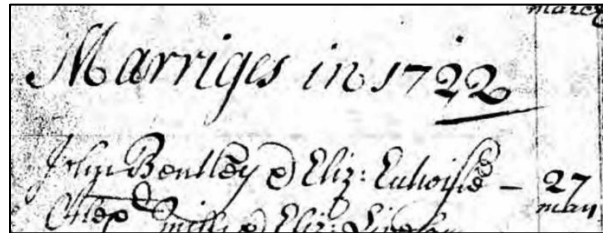 March
Marriges in 1722
John Bentley & Eliz: Entwisle - 27
may
Alexd Smith & Eliz: